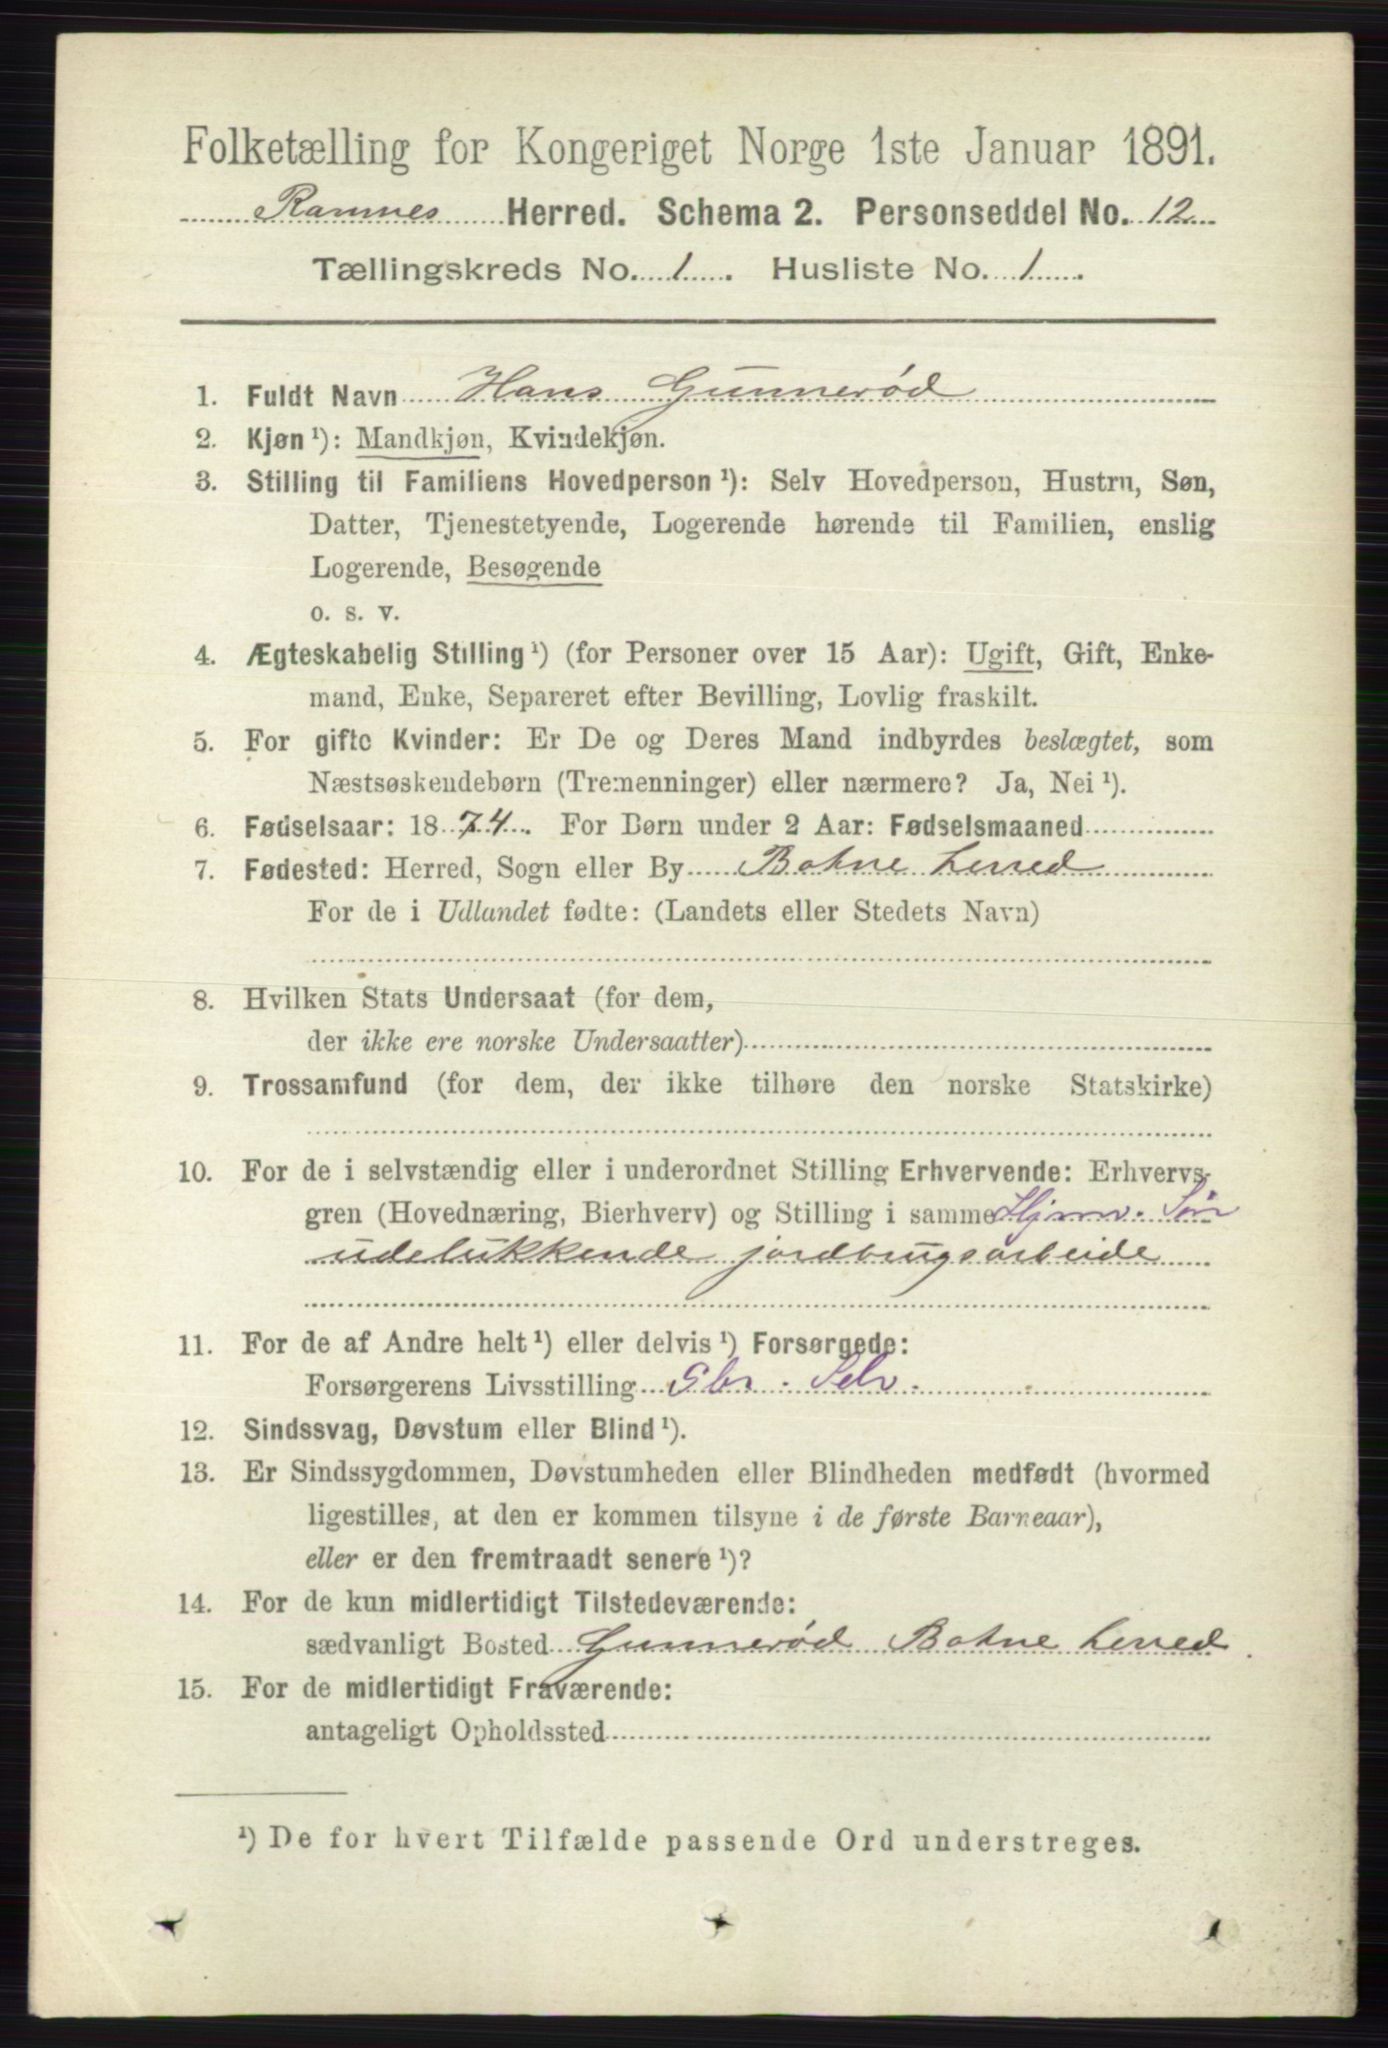 Folketælling for Kongeriget Norge 1ste Januar 1891.
Ramnes Herred. Schema 2. Personseddel No. 12
Tællingskreds No. 1. Husliste No. 1.
1. Fuldt Navn Hans Gunnerød
2. Kjøn ¹): Mandkjøn, Kvindekjøn.
3. Stilling til Familiens Hovedperson ¹): Selv Hovedperson, Hustru, Søn,
Datter, Tjenestetyende, Logerende hørende til Familien, enslig
Logerende, Besøgende
o. s. v.
4. Ægteskabelig Stilling ¹) (for Personer over 15 Aar): Ugift, Gift, Enke-
mand, Enke, Separeret efter Bevilling, Lovlig fraskilt.
5. For gifte Kvinder: Er De og Deres Mand indbyrdes beslægtet, som
Næstsøskendebørn (Tremenninger) eller nærmere? Ja, Nei ¹).
6. Fødselsaar: 1874. For Børn under 2 Aar: Fødselsmaaned
7. Fødested: Herred, Sogn eller By Botne herred
For de i Udlandet fødte: (Landets eller Stedets Navn)
8. Hvilken Stats Undersaat (for dem,
der ikke ere norske Undersaatter)
9. Trossamfund (for dem, der ikke tilhøre den norske Statskirke)
10. For de i selvstændig eller i underordnet Stilling Erhvervende: Erhvervs-
gren (Hovednæring, Bierhverv) og Stilling i samme Hjmv. Søn
udelukkende jordbrugsarbeide
11. For de af Andre helt ¹) eller delvis ¹) Forsørgede:
Forsørgerens Livsstilling Gbr. Selv.
12. Sindssvag, Døvstum eller Blind ¹).
13. Er Sindssygdommen, Døvstumheden eller Blindheden medfødt (hvormed
ligestilles, at den er kommen tilsyne i de første Barneaar),
eller er den fremtraadt senere ¹)?
14. For de kun midlertidigt Tilstedeværende:
sædvanligt Bosted Gunnerød Botne herred
15. For de midlertidigt Fraværende:
antageligt Opholdssted
¹) De for hvert Tilfælde passende Ord understreges.